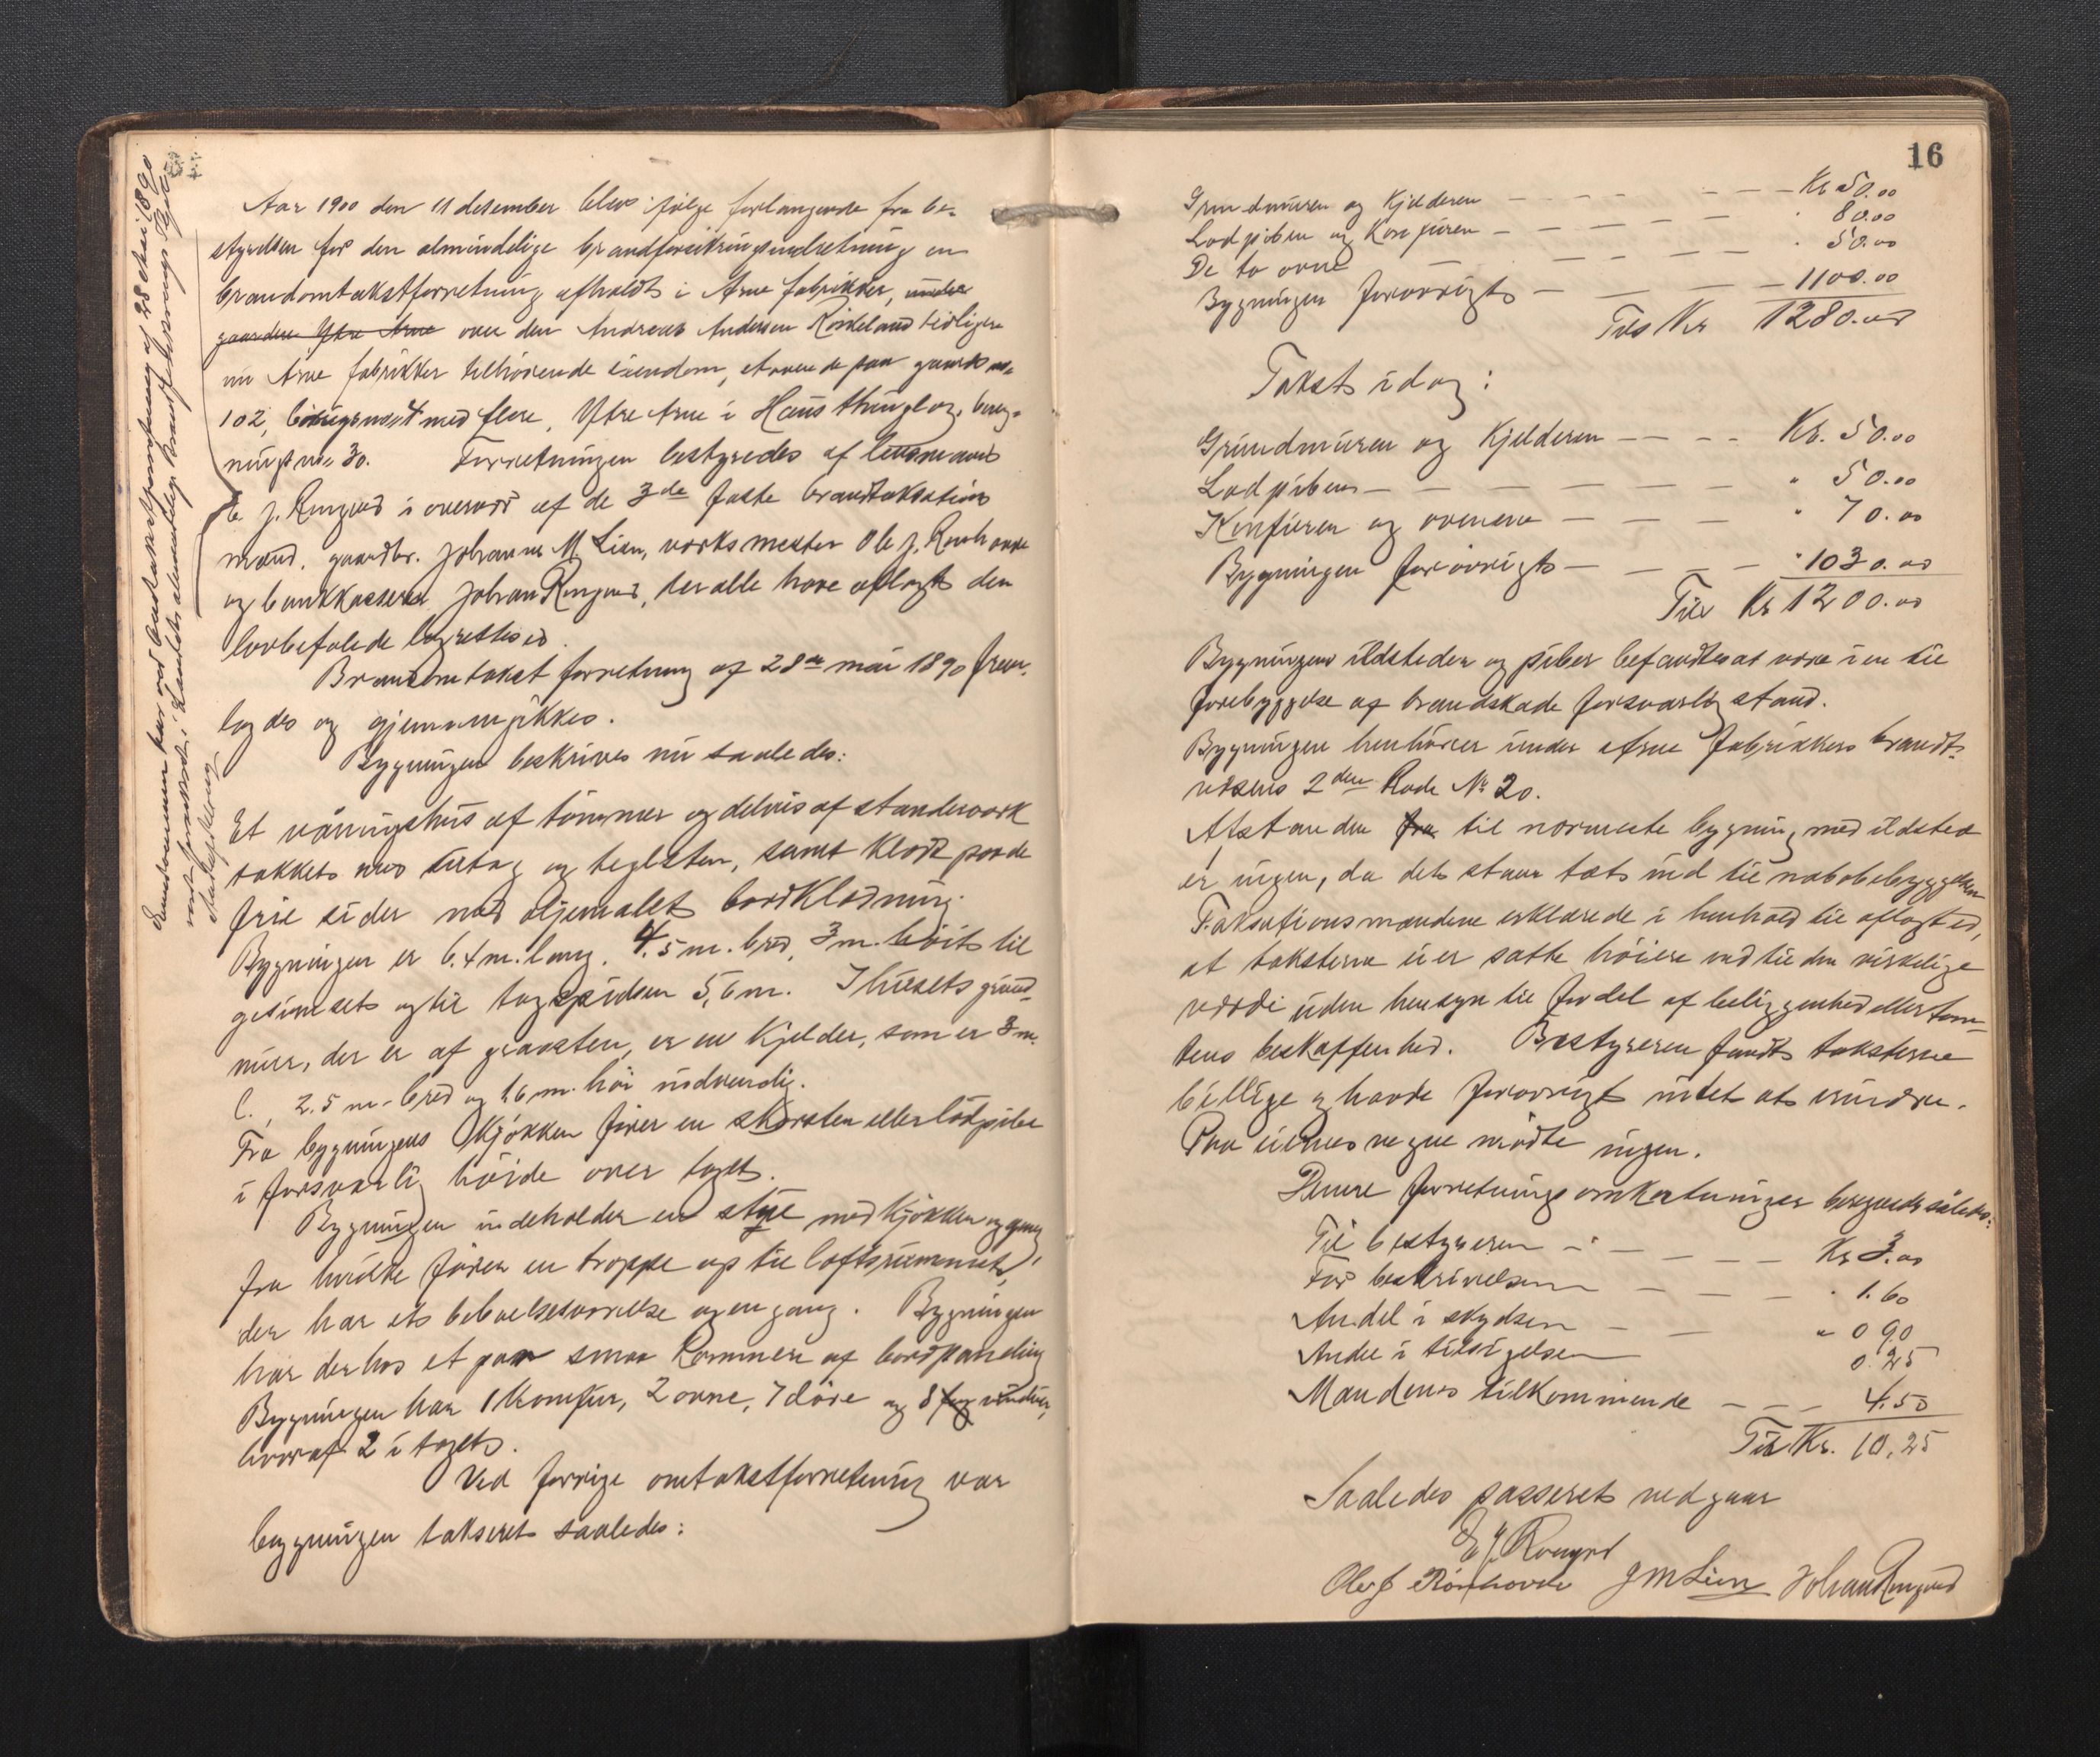 Aar 1900 den 11 desember blev ifølge forlangende fra be-
styrelsen for den almindelige brandforsikringsindretning en
brandomtakstforretning afholdt i Arne fabrikker, under
gaarden Ytre Arne over den Andreas Andersen Röikeland tidligere
nu Arne fabrikker tilhörende eiendom, staaende paa gaards no.
102, brugsno 4 med flere, Ytre Arne i Haus thinglag, bereg-
nings no. 30. Forretningen bestyredes af lensmand
E. J. Rongved i overvær af de 3de faste brandtakstations
mænd, gaardbr. Johannes M. Lien, værksmester Ole J. Rönhovde
og bankkasserer Johan Rongved, der alle have aflagt den
lovbefalede lagretsed.
Brandomtakst forretning af 28de mai 1890 frem-
lagdes og gjennemgikkes.
Bygningen beskrives nu saaledes:
Et våningshus af tömmer og delvis af standerværk
tækket med tretag og teglsten, samt klædt paa de
frie sider med oljemalet bordklædning.
Bygningen er 6.4 m. lang, 4.5 m. bred, 3 m. höit til
gesimset og til tagspidsen 5,6 m. I husets grund-
mur, der er af graasten, er en kjelder, som er 3 m.
l., 2.5 m. bred og 1.6 m. höi indvendig.
Fra bygningens kjøkken fører en skorsten eller lodpibe
i forsvarlig höide over taget.
Bygningen indeholder en stue med kjøkken og gang
fra hvilke fører en trappe op til loftsrummet,
der har et beboelsesværelse og en gang. Bygningen
har derhos et par smaa kammere af bordpaneling
Bygningen har 1 komfur, 2 ovne, 7 döre og 8 fag vinduer,
hvoraf 2 i taget.
Ved forrige omtakstforretning var
bygningen takseret saaledes:
Eiendommen har ved brandtakstforretning af 28 mai 1890
været forsikret i Landets almindelige brandforsikrings
16
Grundmuren og kjelderen - - - Kr 50.00
Lodpiben og komfuren - - - " 80.00
De to ovne - - - " 50.00
Bygningen forøvrigt - - - 1100.00
Tils Kr 1280.00
Takst idag:
Grundmuren og kjelderen - - - Kr. 50.00
Lodpiben - - - " 50.00
Komfuren og ovnene - - - " 70.00
Bygningen forøvrigt - - - " 1030.00
Tils Kr 1200.00
Bygningens ildsteder og piber befandtes at være i en til
forebyggelse af brandskade forsvarlig stand.
Bygningen henhörer under Arne fabrikkers brandt-
væsens 2den Rode No 20.
Afstanden fra til nærmeste bygning med ildsted
er ingen, da det staar tæt ind til nabobebyggelsen
Taksationsmændene erklærede i henhold til aflagt ed,
at taksterne ei er satte höiere end til den virkelige
værdi uden hensyn til fordel af beliggenhed eller tom-
tens beskaffenhed. Bestyreren fandt taksterne
billige og havde forøvrigt intet at erindre.
Paa eiernes vegne mødte ingen.
Denne forretnings omkostninger beregnedes således:
Til bestyreren - - - Kr 3.00
For beskrivelsen - - - " 1.60
Andel i skydsen - - - " 0 90
Andel i tilsigelsen 0.25
Mændenes tilkommende - - - 4.50
Tils Kr. 10.25
Saaledes passeret vedgaar
E J. Rongved
Ole J Rönhovde J M Lien Johan Rongved